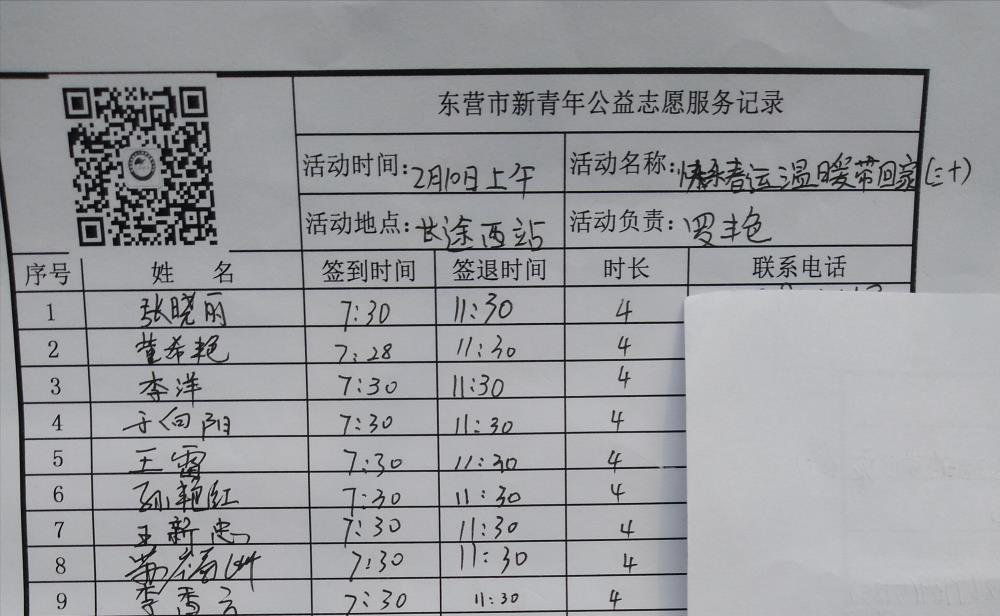 东营市新青年公益志愿服务记录
活动时间:2月10日上午 活动名称:情系春运温暖带回家(三十)
活动地点:长途西站 活动负责:罗丰艳
序号 姓名 签到时间 签退时间 时长 联系电话
1 张晓丽 7:30 11:30 4
2 董希艳 7:28 11:30 4
3 李洋 7:30 11:30 4
4 于向阳 7:30 11:30 4
5 王雷 7:30 11:30 4
6 孙艳红 7:30 11:30 4
7 王新忠 7:30 11:30 4
8 7:30 11:30 4
9 李秀云 7:30 11:30 4